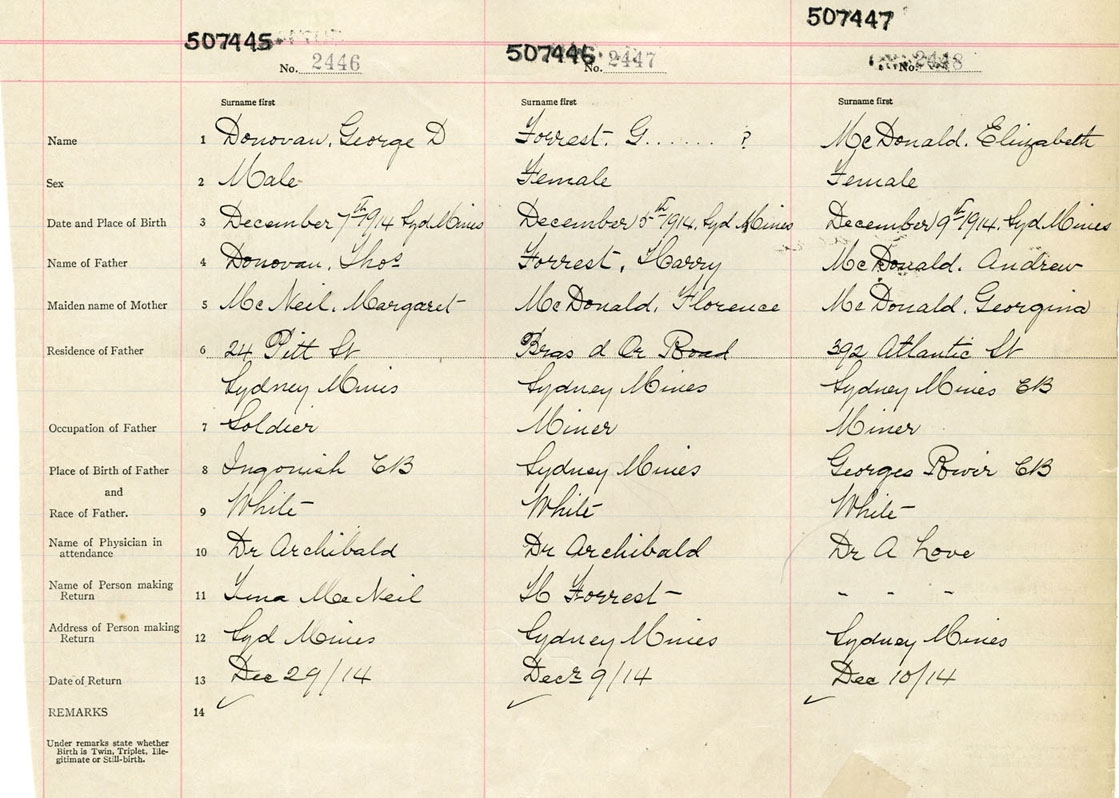 507447
507445 507446
No. 2446 No. 2447 No. 2448
Surname first Surname first Surname first
Name 1 Donovan, George D Forrest. G....... ? McDonald. Elizabeth
Sex 2 Male Female Female
Date and Place of Birth 3 December 7th 1914 Syd Mines December 5th 1914. Syd Mines December 9th 1914. Syd Mines
Name of Father 4 Donovan, Thos Forrest, Harry McDonald. Andrew
Maiden name of Mother 5 McNeil, Margaret McDonald, Florence McDonald, Georgina
Residence of Father 6 24 Pitt St Bras d Or Road 392 Atlantic St
Sydney Mines Sydney Mines Sydney Mines CB
Occupation of Father 7 Soldier Miner Miner
Place of Birth of Father 8 Ingonish CB Sydney Mines Georges River CB
and
Race of Father. 9 White White White
Name of Physician in
attendance 10 Dr Archibald Dr Archibald Dr A Love
Name of Person making
Return 11 McNeil H Forrest - - - -
Address of Person making
Return 12 Syd Mines Sydney Mines Sydney Mines
Date of Return 13 Dec 29/14 Decr 9/14 Dec 10/14
REMARKS 14
Under remarks state whether
Birth is Twin, Triplet, Ille-
gitimate or Still-birth.